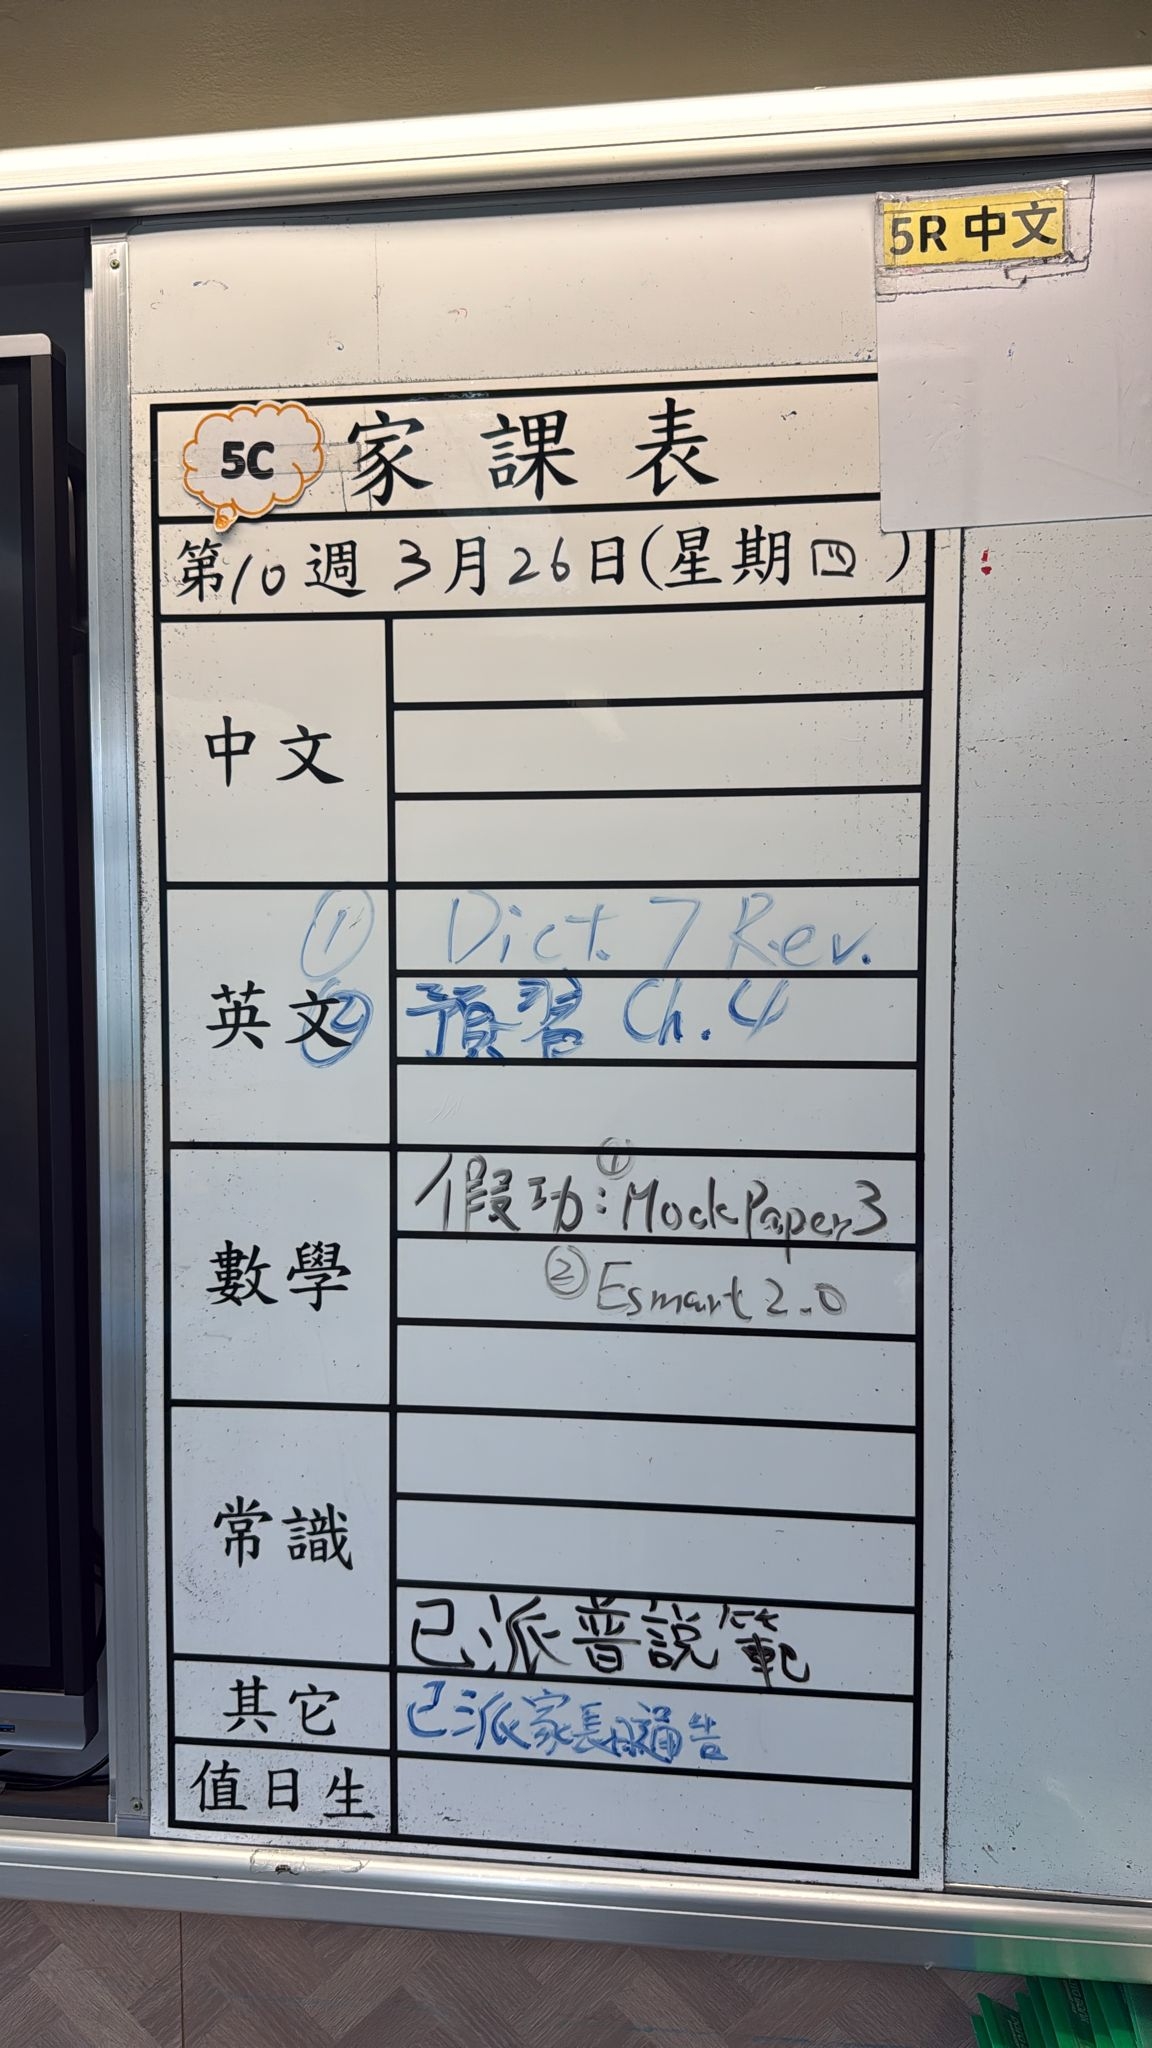 5R 中文
5C 家課表
第10週 3月26日(星期四)
中文
英文
① Dict. 7 Rev.
② 預習 Ch. 4
數學
假功:① Mock Paper 3
② Esmart 2.0
常識
已派普說範
其它
已派家長通告
值日生